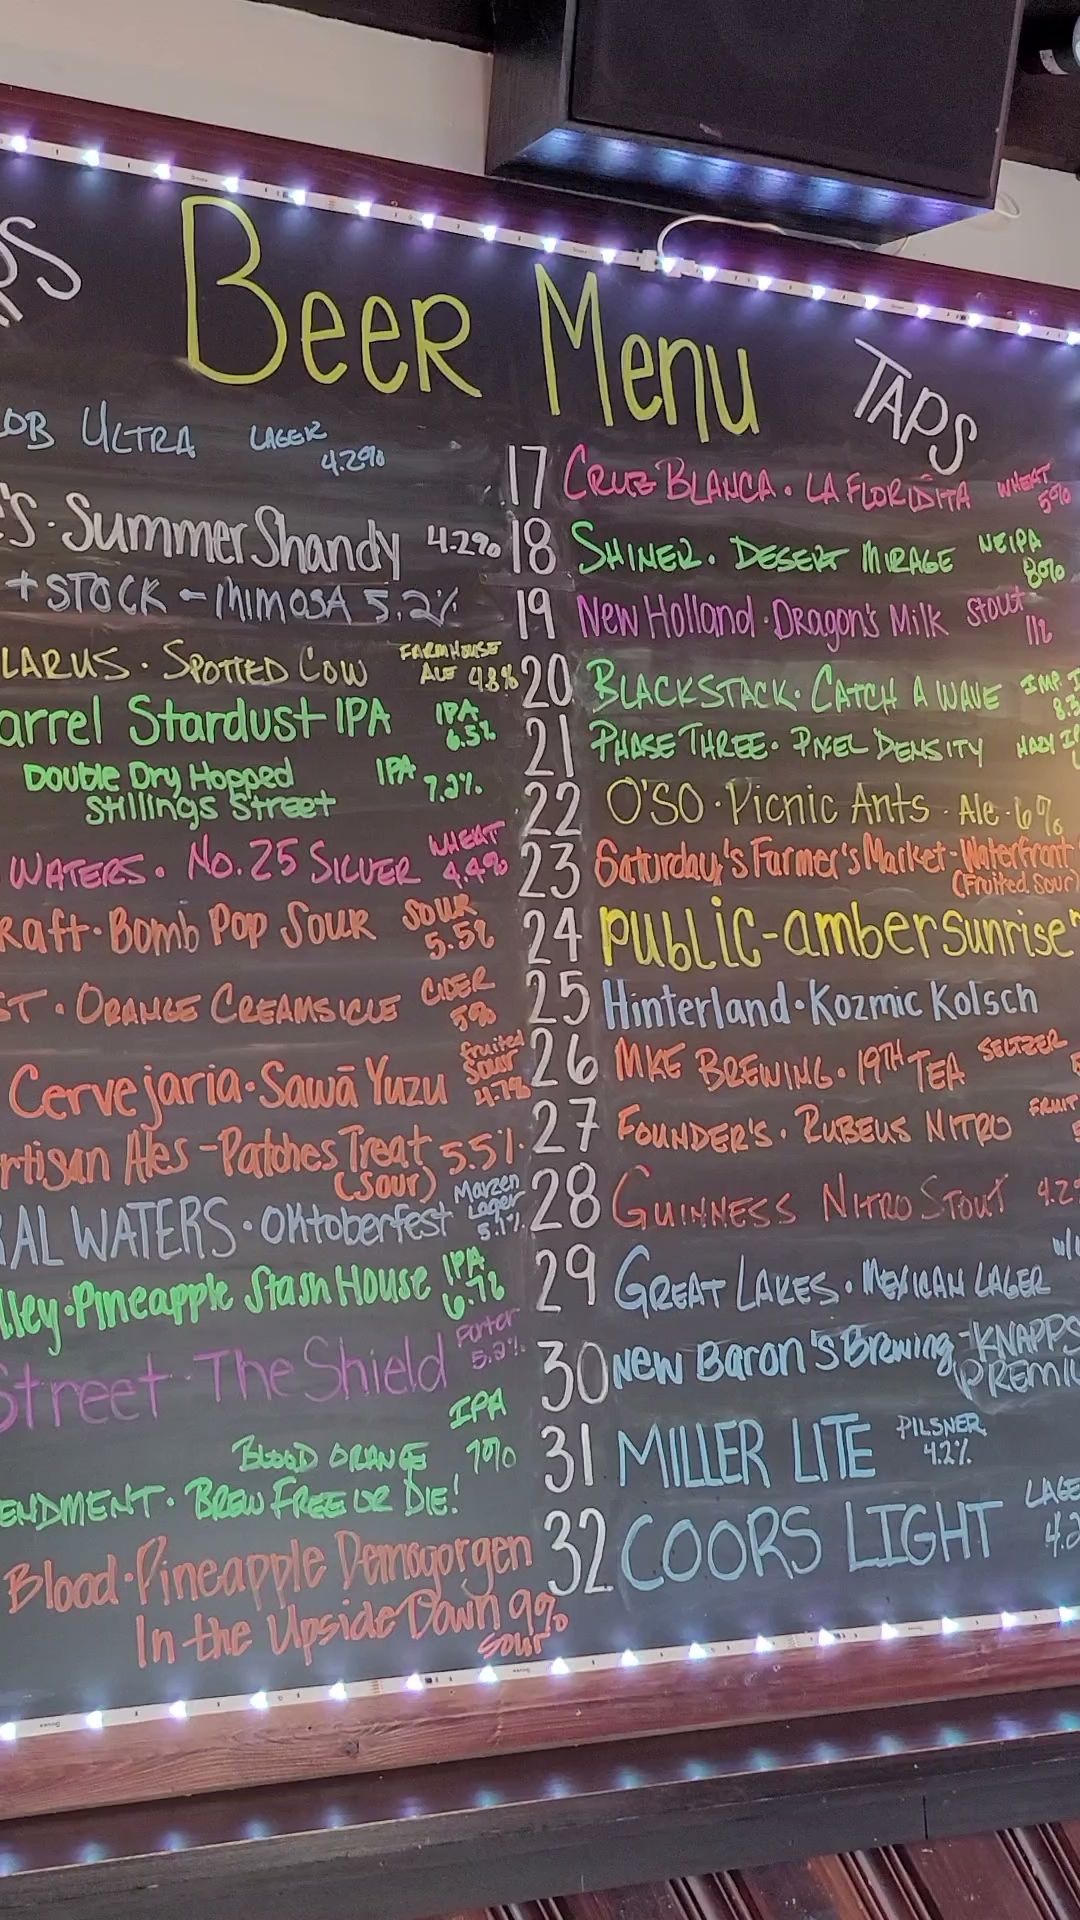 Beer Menu
TAPS
ULTRA LAGER
4.2%
Summer Shandy 4.2%
+ STOCK - MIMOSA 5.2%
SPOTTED COW FARMHOUSE
ALE 4.8%
Stardust IPA IPA
6.5%
Double Dry Hopped IPA
Stillings Street 7.2%
WATERS · No. 25 SILVER WHEAT
4.4%
Bomb Pop Sour SOUR
5.5%
ORANGE CREAMSICLE CIDER
5%
Cervejaria · Sawā Yuzu fruited
sour
4.7%
Ales - Patches Treat 5.5%
(Sour)
WATERS · Oktoberfest Marzen
Lager
5.7%
Pineapple Stash House IPA
6.7%
Street · The Shield Porter
5.2%
IPA
BLOOD ORANGE 7%
BREW FREE OR DIE!
Blood · Pineapple Demogorgen
In the Upside Down 9%
Sour
17 CRUZ BLANCA · LA FLORIDITA WHEAT
5%
18 SHINER · DESERT MIRAGE NEIPA
8%
19 New Holland · Dragon's Milk Stout
11%
20 BLACKSTACK · CATCH A WAVE IMP.
21 PHASE THREE · PIXEL DENSITY HAZY
22 O'SO · Picnic Ants · Ale · 6%
23 Saturday's Farmer's Market - Waterfront
(Fruited Sour)
24 PUBLIC - amber sunrise
25 Hinterland · Kozmic Kolsch
26 MKE BREWING · 19TH TEA SELTZER
27 FOUNDER'S · RUBEUS NITRO FRUIT
28 GUINNESS NITRO STOUT
29 GREAT LAKES · MEXICAN LAGER
30 New Baron's Brewing - KNAPPS
31 MILLER LITE PILSNER
4.2%
32 COORS LIGHT